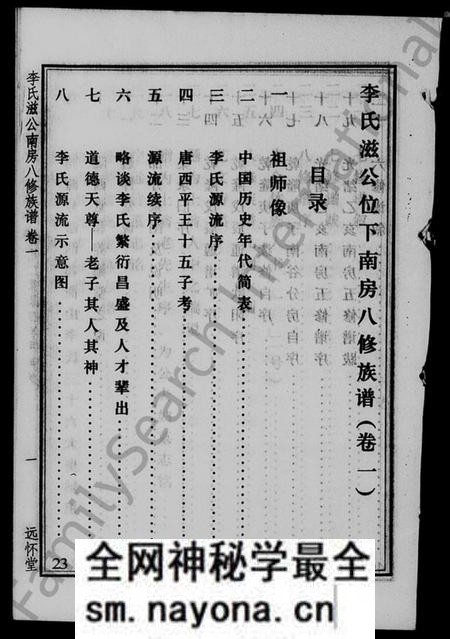 李氏滋公位下南房八修族谱(卷一)
目录
一 祖师像
二 中国历史年代简表
三 李氏源流序
四 唐西平王十五子考
五 源流续序
六 略谈李氏繁衍昌盛及人才辈出
七 道德天尊——老子其人其神
八 李氏源流示意图
李氏滋公南房八修族谱 卷一
一
远怀堂
23
FamilySearch International
全网神秘学最全
sm.nayona.cn